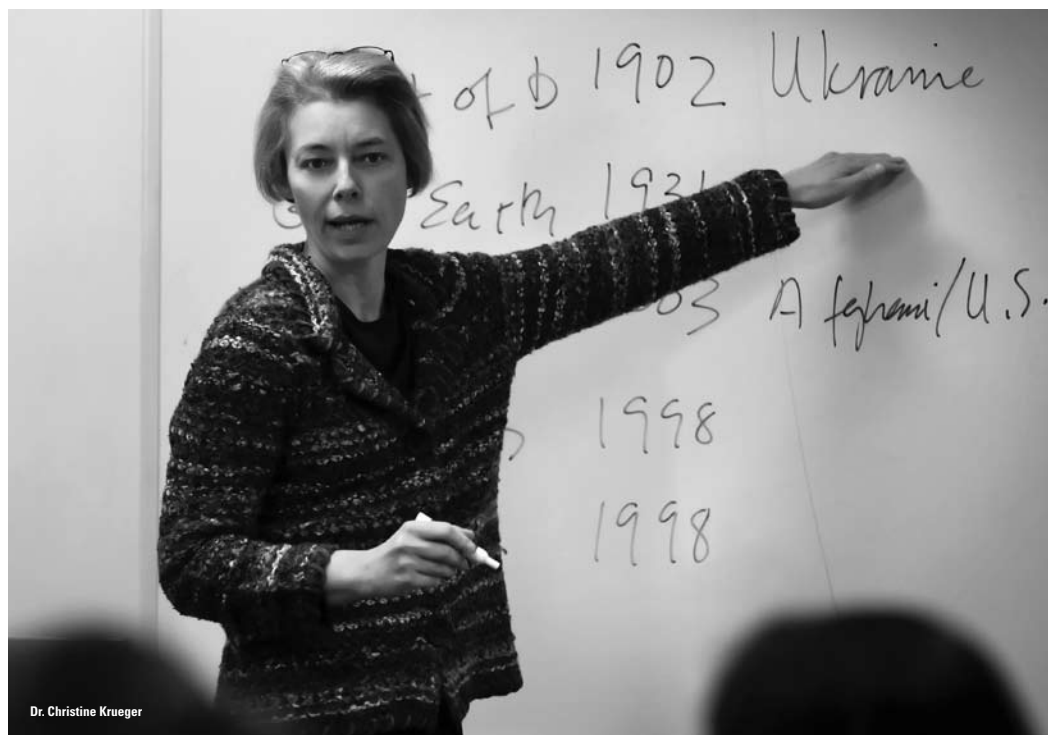 of D 1902 Ukraine
Earth 1931
03 Afghani/U.S.
1998
1998
Dr. Christine Krueger